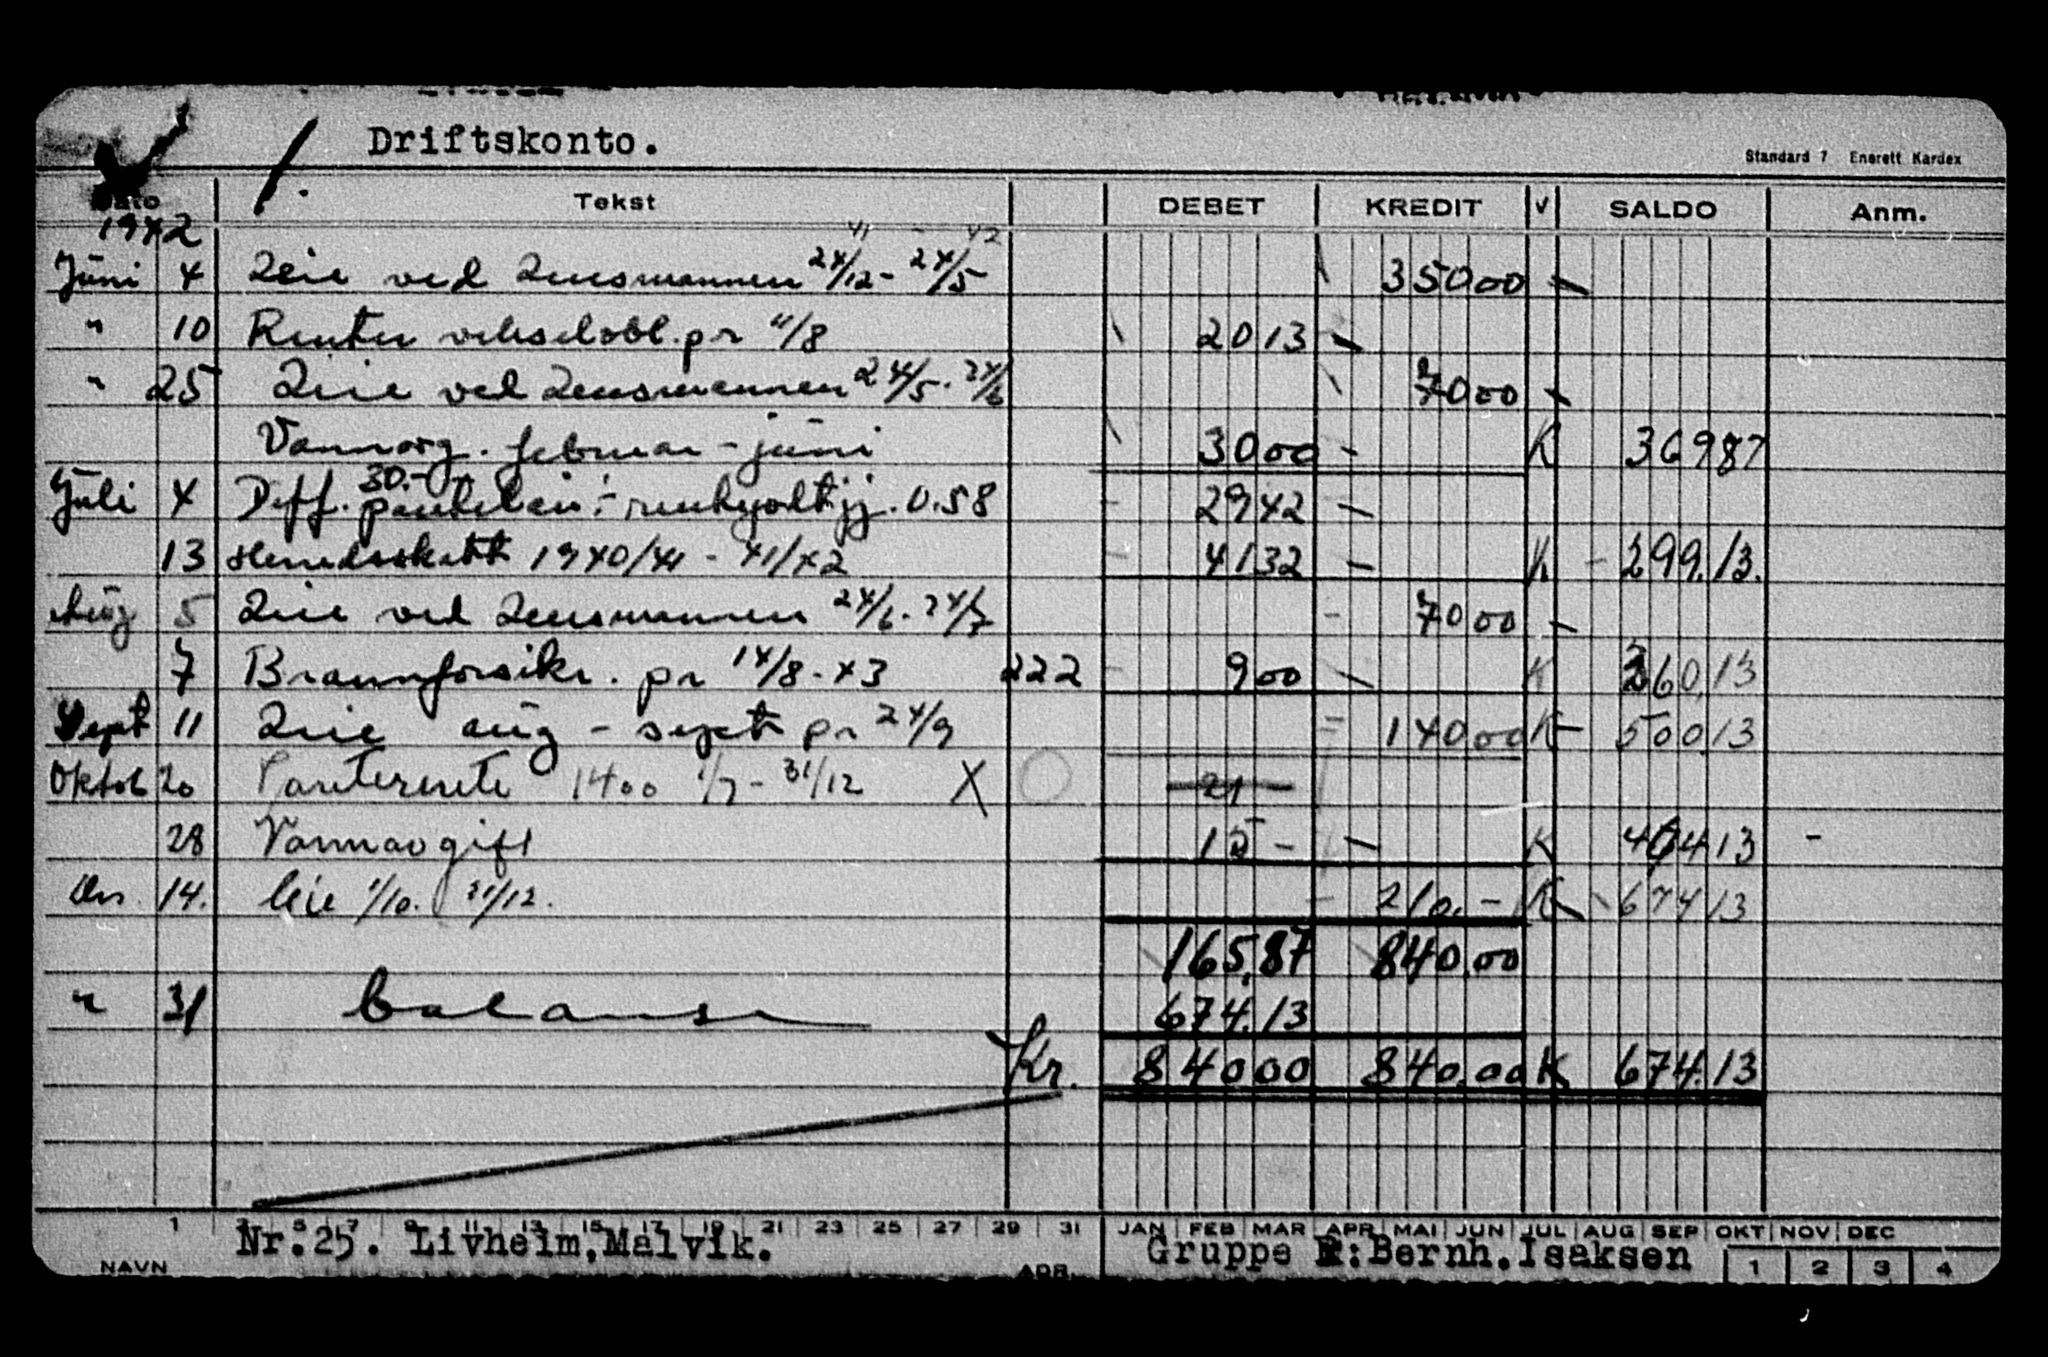 Driftskonto.
Standard 7 Enerett Kardex
Dato Tekst DEBET KREDIT V SALDO Anm.
1942 41 - 42
Juni 4 Leie ved Lensmannen 24/12 - 24/5 350 00
" 10 Renter vekselobl. pr 11/8 20 13
" 25 Leie ved Lensmannen 24/5 - 24/6 70 00
Vannavg. februar - juni 30 00 K 369 87
30.-
Juli 4 Diff. pantelån: - 0.58 29 42
13 Herredsskatt 1940/41 - 41/42 41 32 K 299.13.
Aug 5 Leie ved Lensmannen 24/6 - 24/7 70 00
7 Brannforsikr. pr 14/8 - 43 222 9 00 K 360,13
Sept 11 Leie aug - sept pr 24/9 140 00 K 500,13
Oktob 20 Panterente 1400 1/7 - 31/12 X 21
28 Vannavgift 15 - K 464 13 -
Des. 14. leie 1/10. 31/12. 210. - K 674 13
165,87 840,00
" 31 balanse 674.13
Kr. 840 00 840.00 K 674.13
1 3 5 7 9 11 13 15 17 19 21 23 25 27 29 31 JAN FEB MAR APR MAI JUN JUL AUG SEP OKT NOV DEC
NAVN Nr.25. Livheim, Malvik. ADR. Gruppe F: Bernh. Isaksen 1 2 3 4